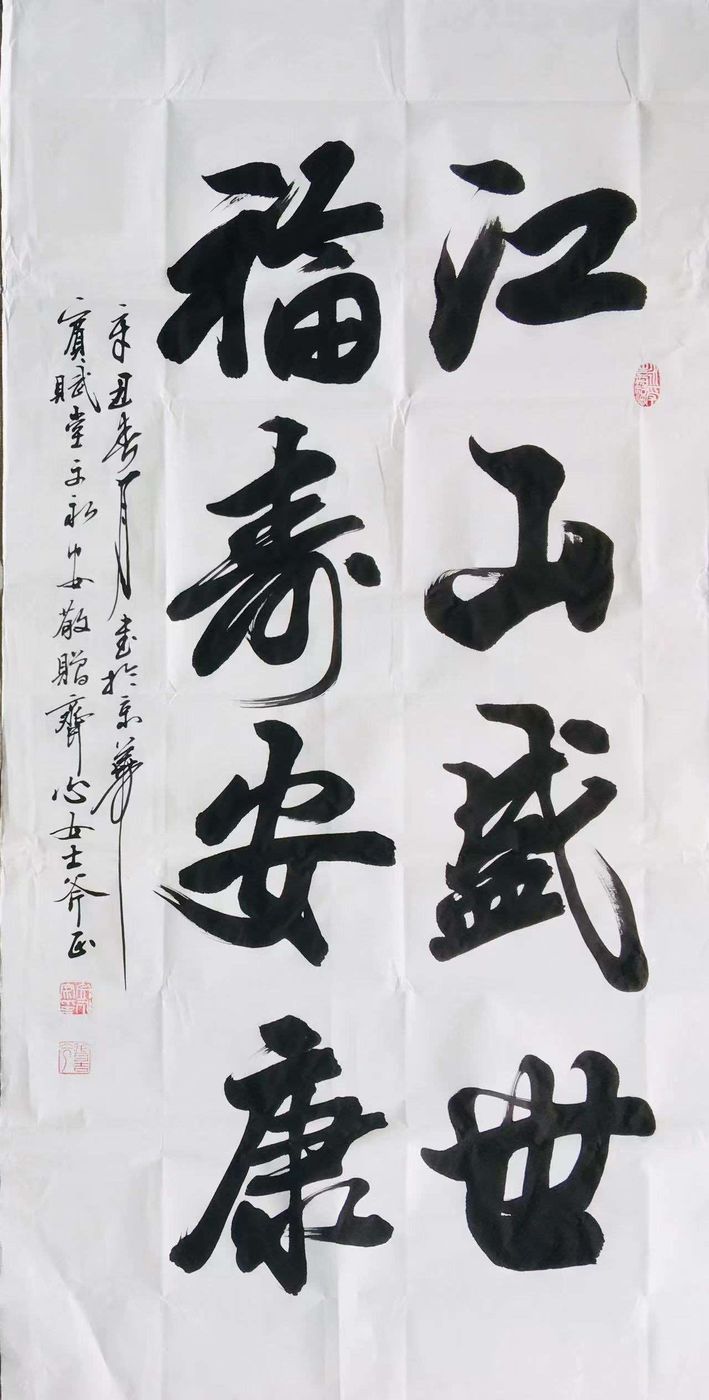 江山盛世
福寿安康
辛丑春月書於京華
賓賦堂主永安敬贈齊心女士斧正